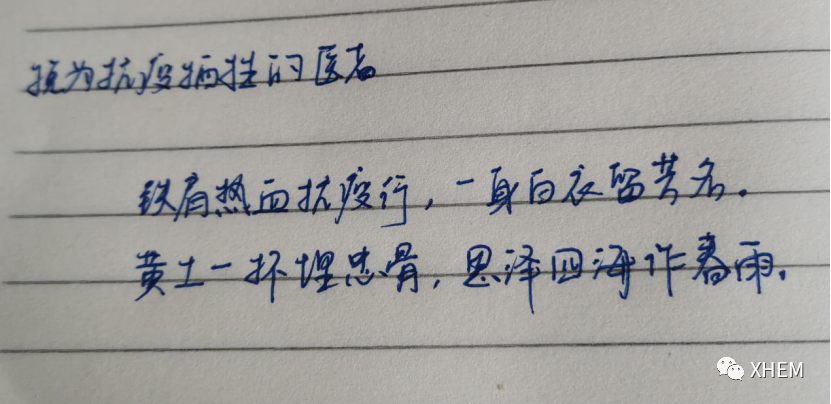 须为抗疫牺牲的医者
铁肩热血抗疫行,一身白衣留芳名。
黄土一抔埋忠骨,恩泽四海作春雨。
XHEM